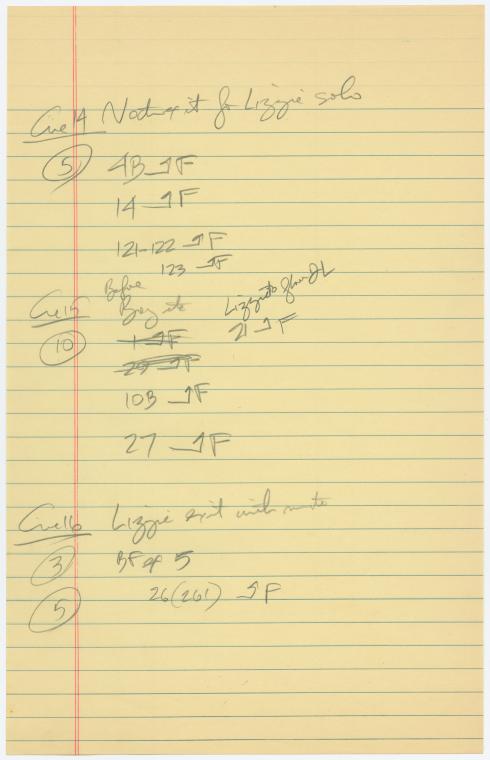 Cue 14 for Lizzie solo
5 4B → F
14 → F
121-122 → F
123 → F
Cue 15 Before
Lizzie
21 → F
10 1 → F
29 → F
10B → F
27 → F
Cue 16 Lizzie exit with
3 BF 5
5 26(261) → F